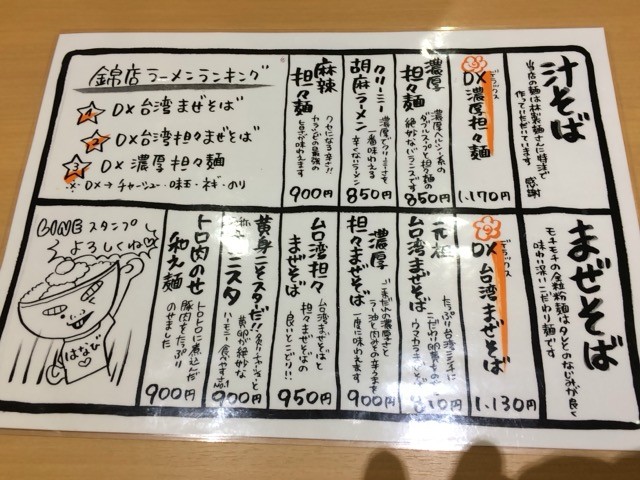 汁そば
当店の麺は林製麺さんに特注で
作っていただいています 感謝
デラックス
DX 濃厚担々麺
1.170円
濃厚
担々麺
濃厚ヘルシー系の
ダブルスープと担々麺の
絶妙なバランスです
850円
クリーミー
胡麻ラーメン
濃厚でクリーミーさを
一番味わえる
辛くないラーメン
850円
麻辣
担々麺
クセになる辛さ!!
カラシビの最強の
旨さが味わえます
900円
錦店 ラーメンランキング
1 DX台湾まぜそば
2 DX台湾担々まぜそば
3 DX 濃厚担々麺
※DX→チャーシュー・味玉・ネギ・のり
まぜそば
モチモチの全粒粉麺はタレとのなじみが良く
味わい深いこだわり麺です
デラックス
DX 台湾まぜそば
1.130円
元祖
台湾まぜそば
たっぷり台湾ミンチに
ウマカラ
濃厚
担々まぜそば
ゴマだれの濃厚さと
ラー油と肉みその辛うまを
一度に味わえます
900円
台湾担々
まぜそば
台湾まぜそばと
担々まぜそばの
良いとこどり!!
950円
黄身こそスターだ!!
卵黄が絶妙な
ハーモニー 食べやすさNo.1
900円
トロ肉のせ
和え麺
トロトロに煮込んだ
豚肉をたっぷり
のせました
900円
LINEスタンプ
よろしくね♡
はなび